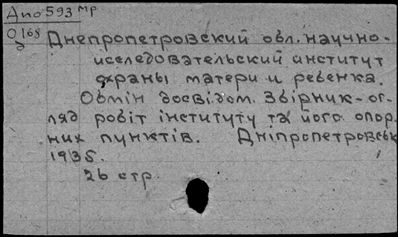 Дпо593 мр
0168
Днепропетровский обл. научно-
исследовательский институт
охраны матери и ребенка.
Обмін досвідом. Збірник-ог-
ляд робіт інституту та його опор-
них пунктів. Дніпропетровськ
1935.
26 стр.